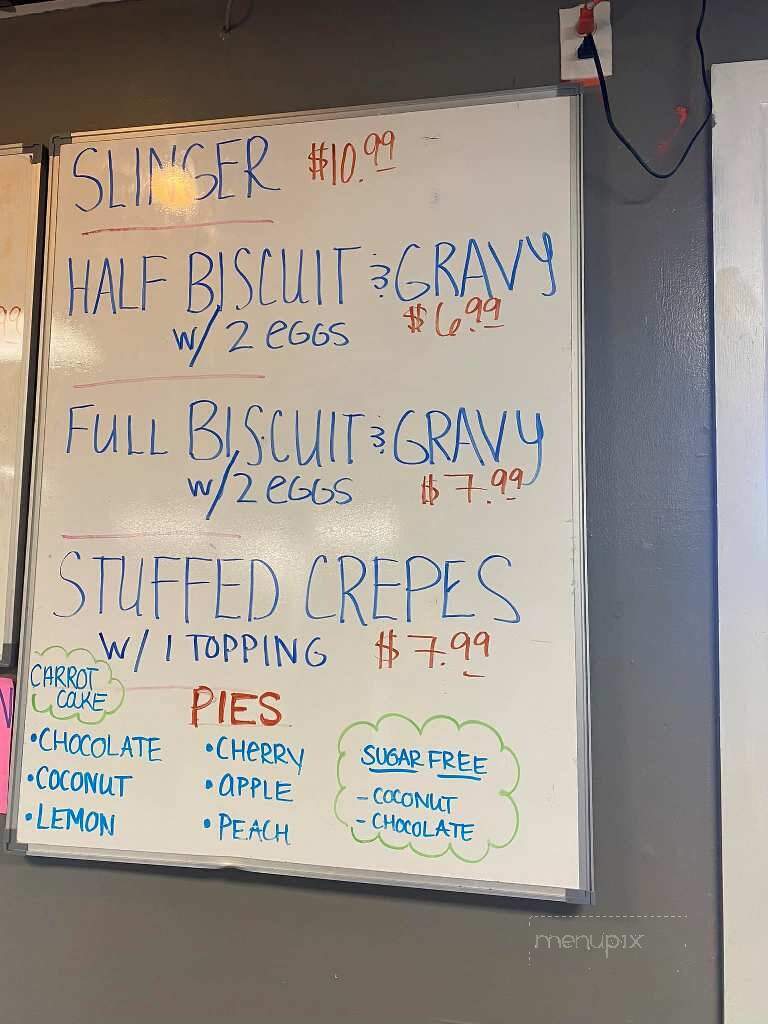 SLINGER $10.99
HALF BISCUIT & GRAVY
w/ 2 eGGS $6.99
FULL BISCUIT & GRAVY
w/ 2 eGGS $7.99
STUFFED CREPES
W/ 1 TOPPING $7.99
CARROT
CAKE
PIES
•CHOCOLATE •CHERRY
•COCONUT •APPLE
•LEMON •PEACH
SUGAR FREE
- COCONUT
- CHOCOLATE
99
menupix